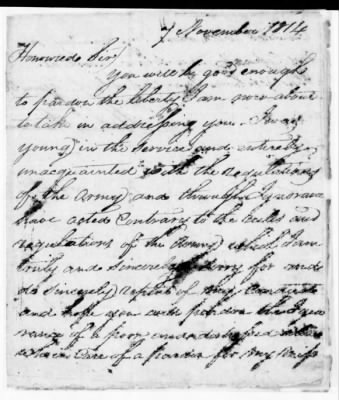 7 November 1814
Honoured Sir
You will be good enough
to pardon the liberty I am now about
to take in addressing you. I was
young in the Service and entirely
unacquainted with the Regulations
of the Army and through Ignorance
have acted Contrary to the Rules and
regulations of the Army which I am
truly and Sincerely Sorry for and
do Sincerely repent of my Conduct
and hope you will pardon the Igno
rance of a poor and
of a pardon for my